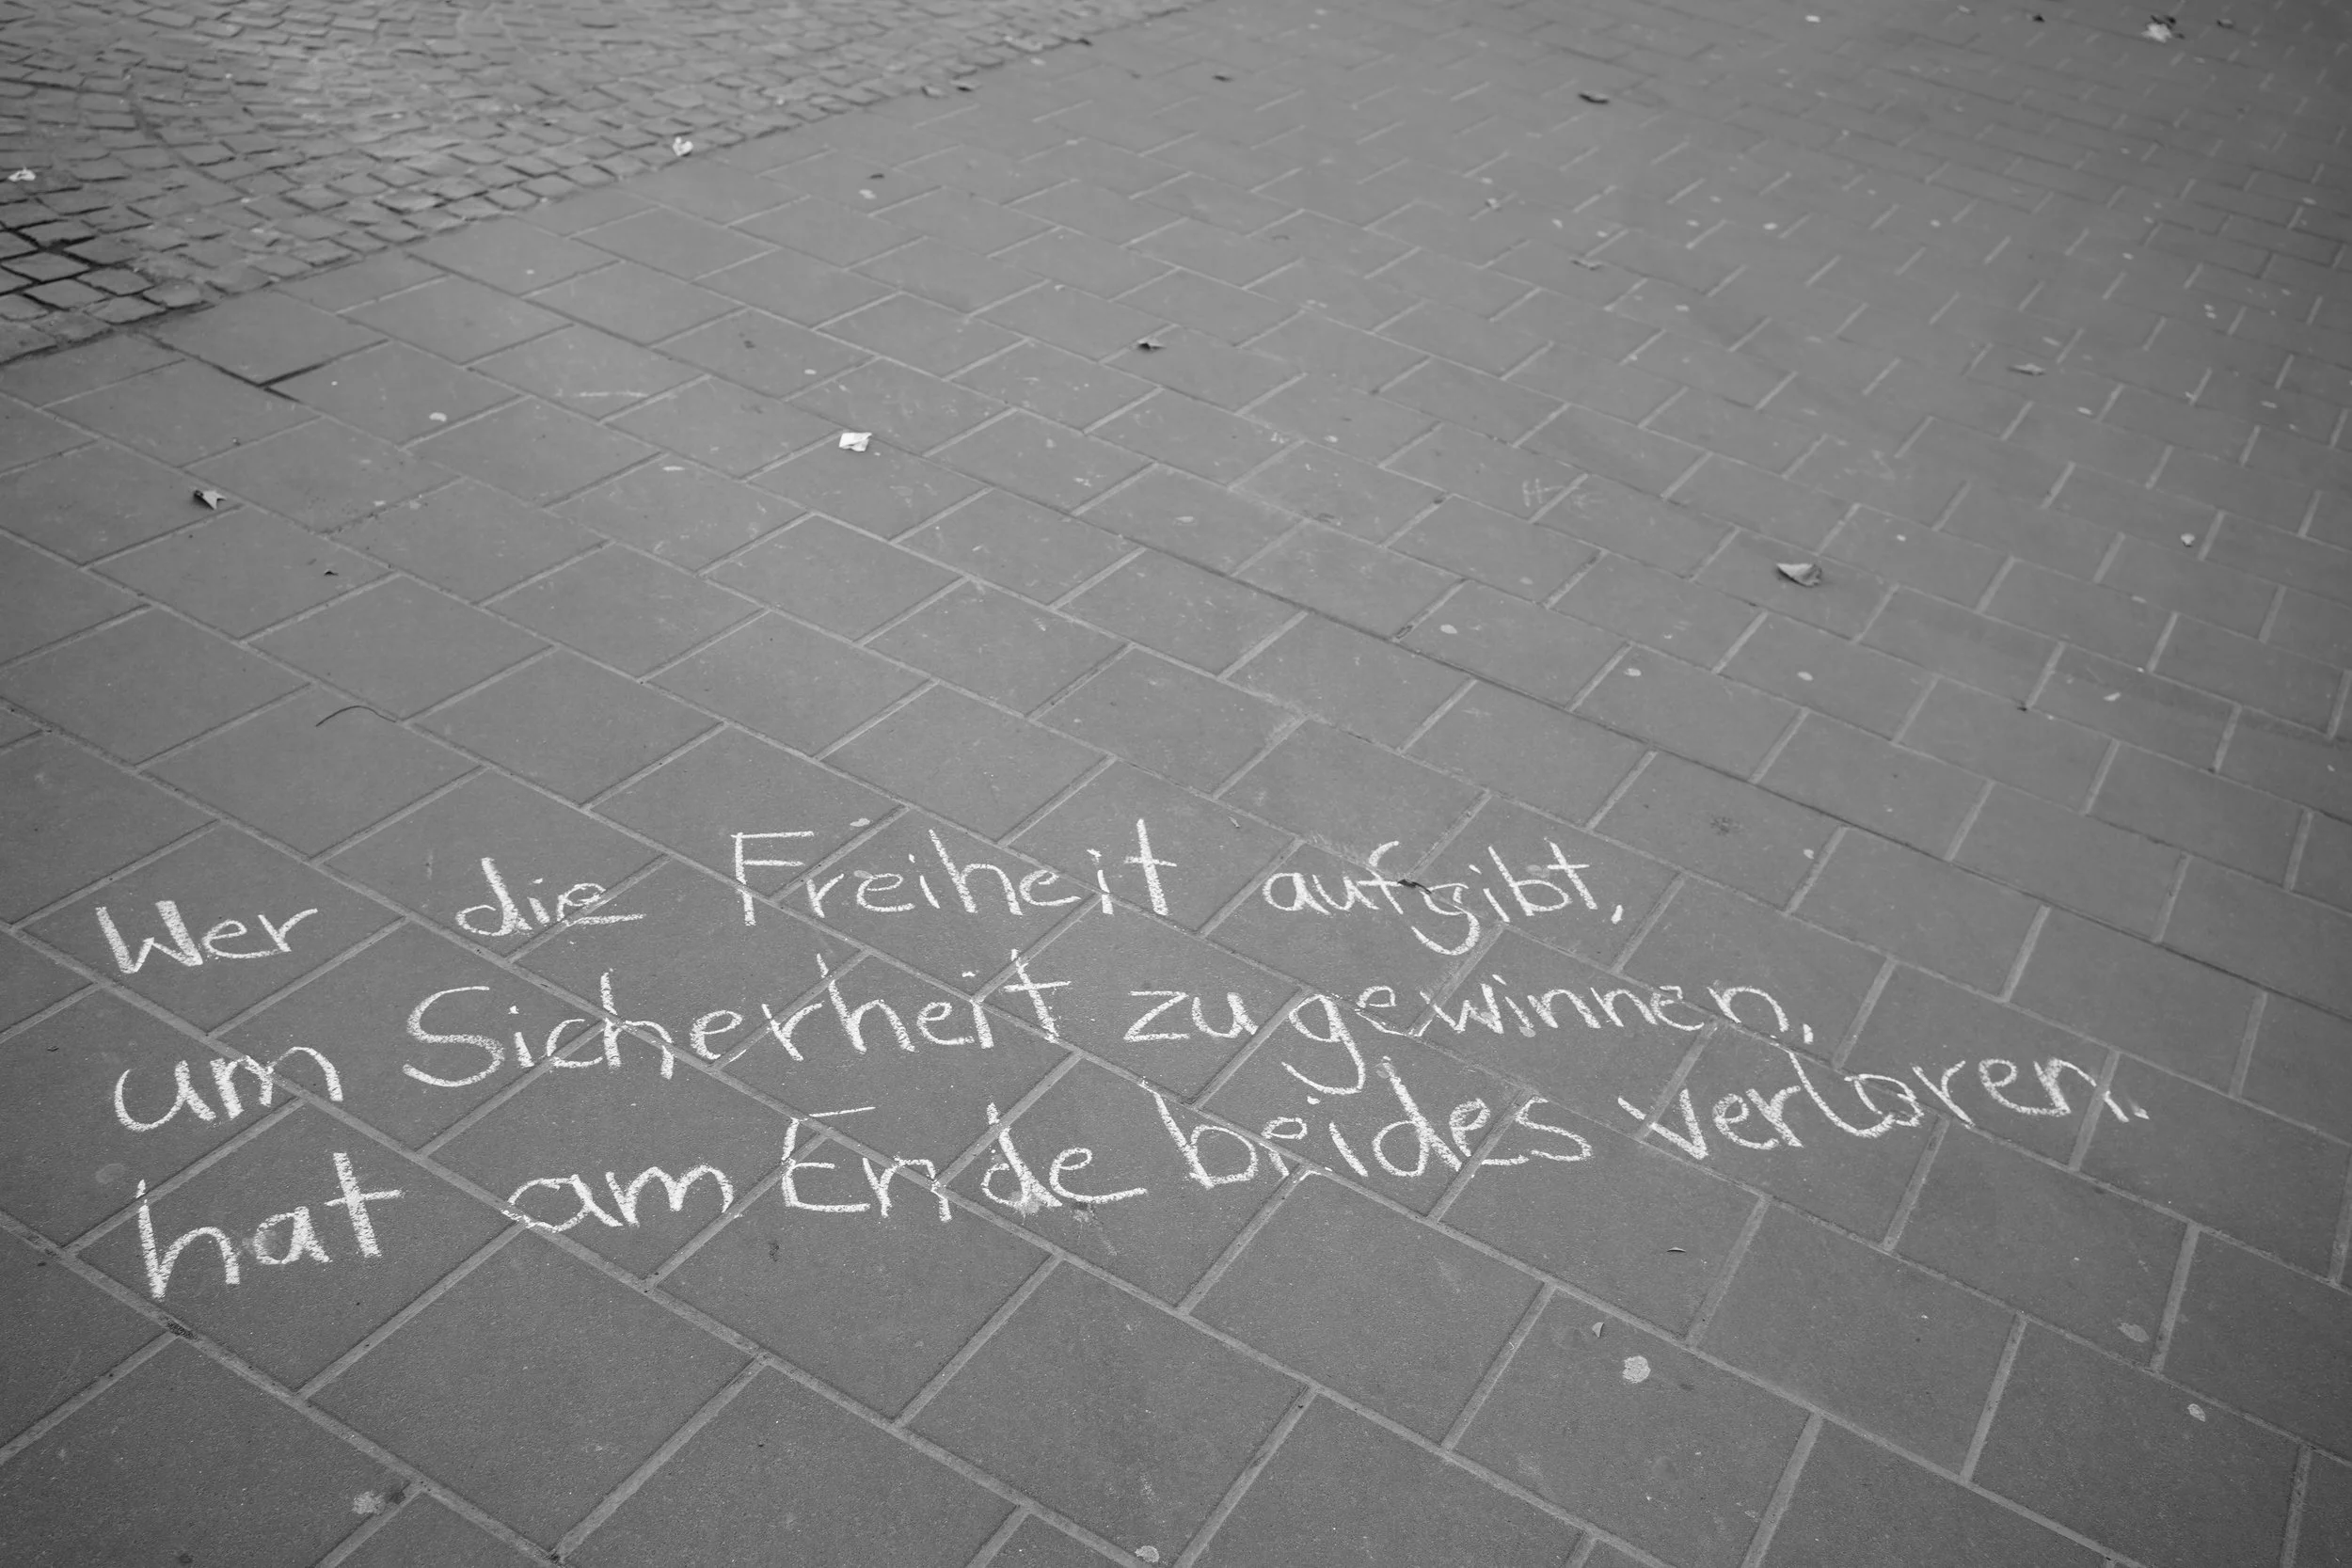 Wer die Freiheit aufgibt,
um Sicherheit zu gewinnen,
hat am Ende beides verloren.